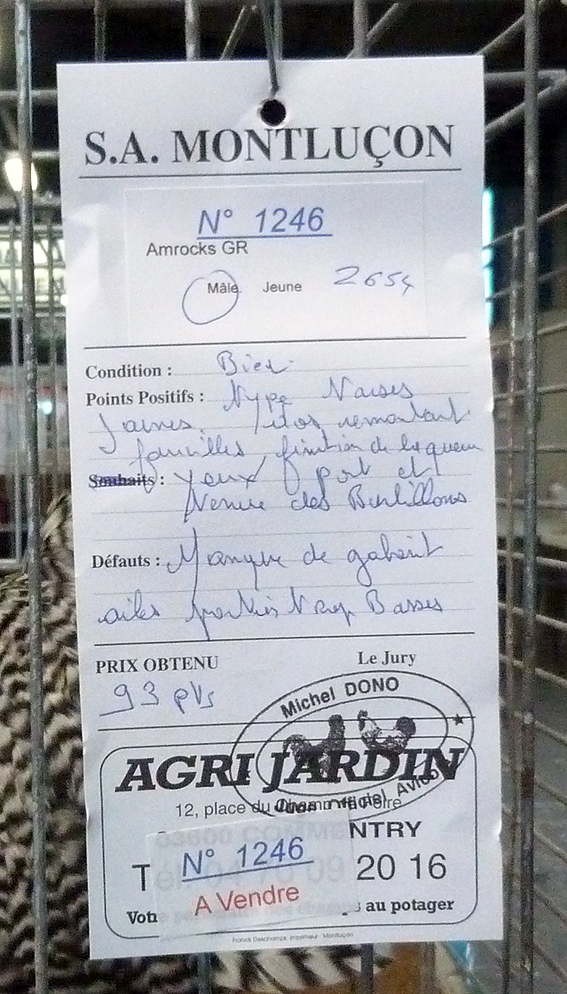 S.A. MONTLUÇON
N° 1246
Amrocks GR
Mâle Jeune 2654
Condition : Bien
Points Positifs : Type Narses
Jaunes. remontant
faucilles, finition de la queue
Souhaits : yeux port et
Tenue des Barbillons
Défauts : Manque de gabarit
ailes portées trop Basses
PRIX OBTENU Le Jury
93 pts
Michel DONO
AGRI JARDIN
12, place du Champ de Foire
NTRY
T 20 16
N° 1246
A Vendre
Vot au potager
Franck Deschamps, Imprimeur - Montluçon